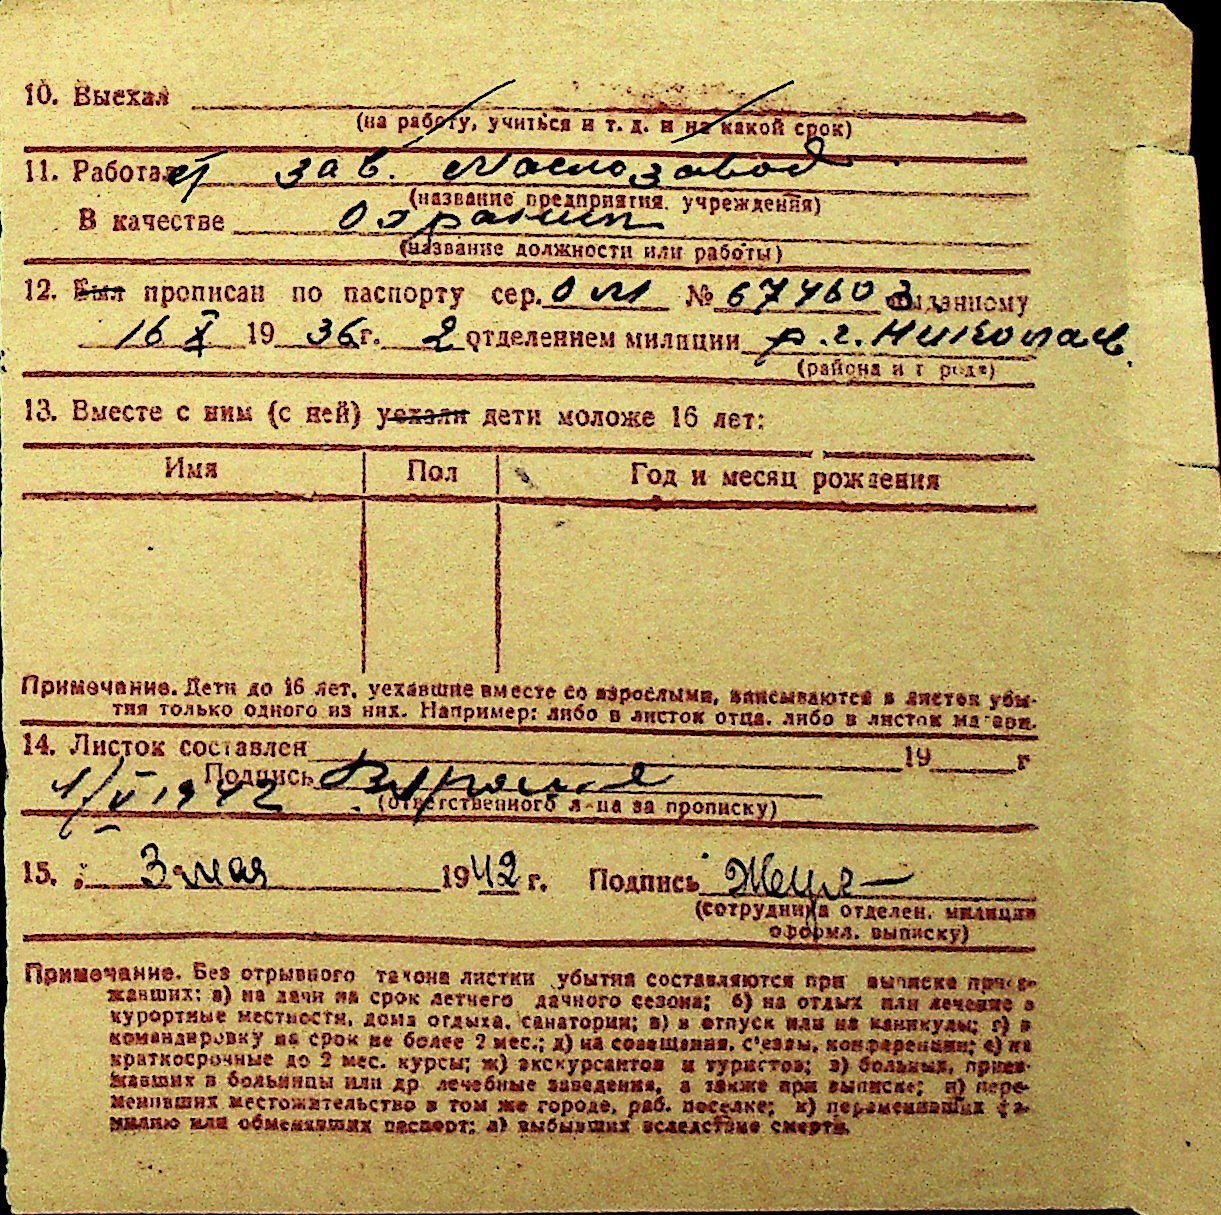 10. Выехал
(на работу, учиться и т. д. и на какой срок)
11. Работает зав. Маслозавод
(название предприятия, учреждения)
В качестве Охранник
(название должности или работы)
12. Был прописан по паспорту сер. ОМ № 674603 выданному
16 X 1936 г. 2 отделением милиции р. г. Николаев
(района и города)
13. Вместе с ним (с ней) уехали дети моложе 16 лет:
Имя Пол Год и месяц рождения
Примечание. Дети до 16 лет, уехавшие вместе со взрослыми, вписываются в листок убы-
тия только одного из них. Например: либо в листок отца, либо в листок матери.
14. Листок составлен 19 г
Подпись
1/V 1942 (ответственного лица за прописку)
15. 3 мая 1942 г. Подпись
(сотрудника отделен. милиции
оформл. выписку)
Примечание. Без отрывного талона листки убытия составляются при выписке приез-
жавших: а) на дачи на срок летнего дачного сезона; б) на отдых или лечение в
курортные местности, дома отдыха, санатории; в) в отпуск или на каникулы; г) в
командировку на срок не более 2 мес.; д) на совещания, с'езды, конференции; е) на
краткосрочные до 2 мес. курсы; ж) экскурсантов и туристов; з) больных, приез-
жавших в больницы или др лечебные заведения, а также при выписке; и) пере-
менивших местожительство в том же городе, раб. поселке; к) переменивших фа-
милию или обменявших паспорт; л) выбывших вследствие смерти.